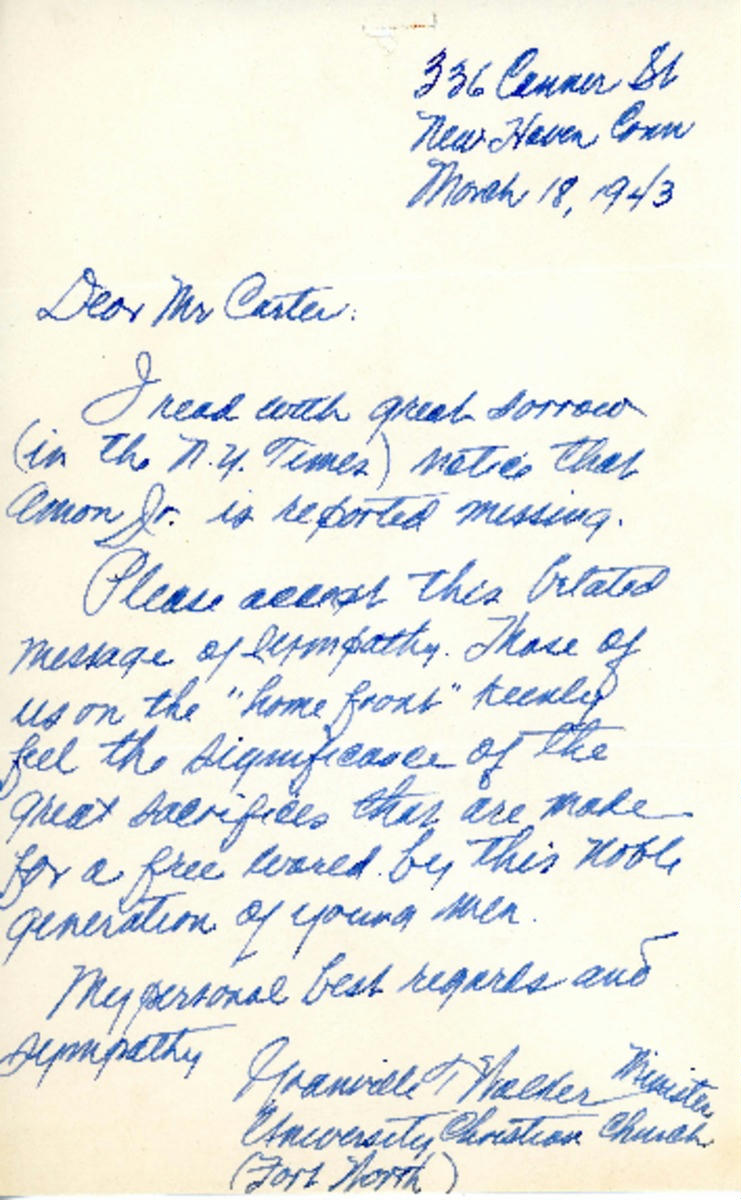 336 Canner St
New Haven Conn
March 18, 1943
Dear Mr Carter:
I read with great sorrow
(in the N.Y. Times) notice that
Amon Jr. is reported missing.
Please accept this belated
message of sympathy. Those of
us on the "home front" keenly
feel the significance of the
great sacrifices that are made
for a free world by this noble
generation of young men.
My personal best regards and
sympathy
Granville T Walker Minister
University Christian Church
(Fort Worth)